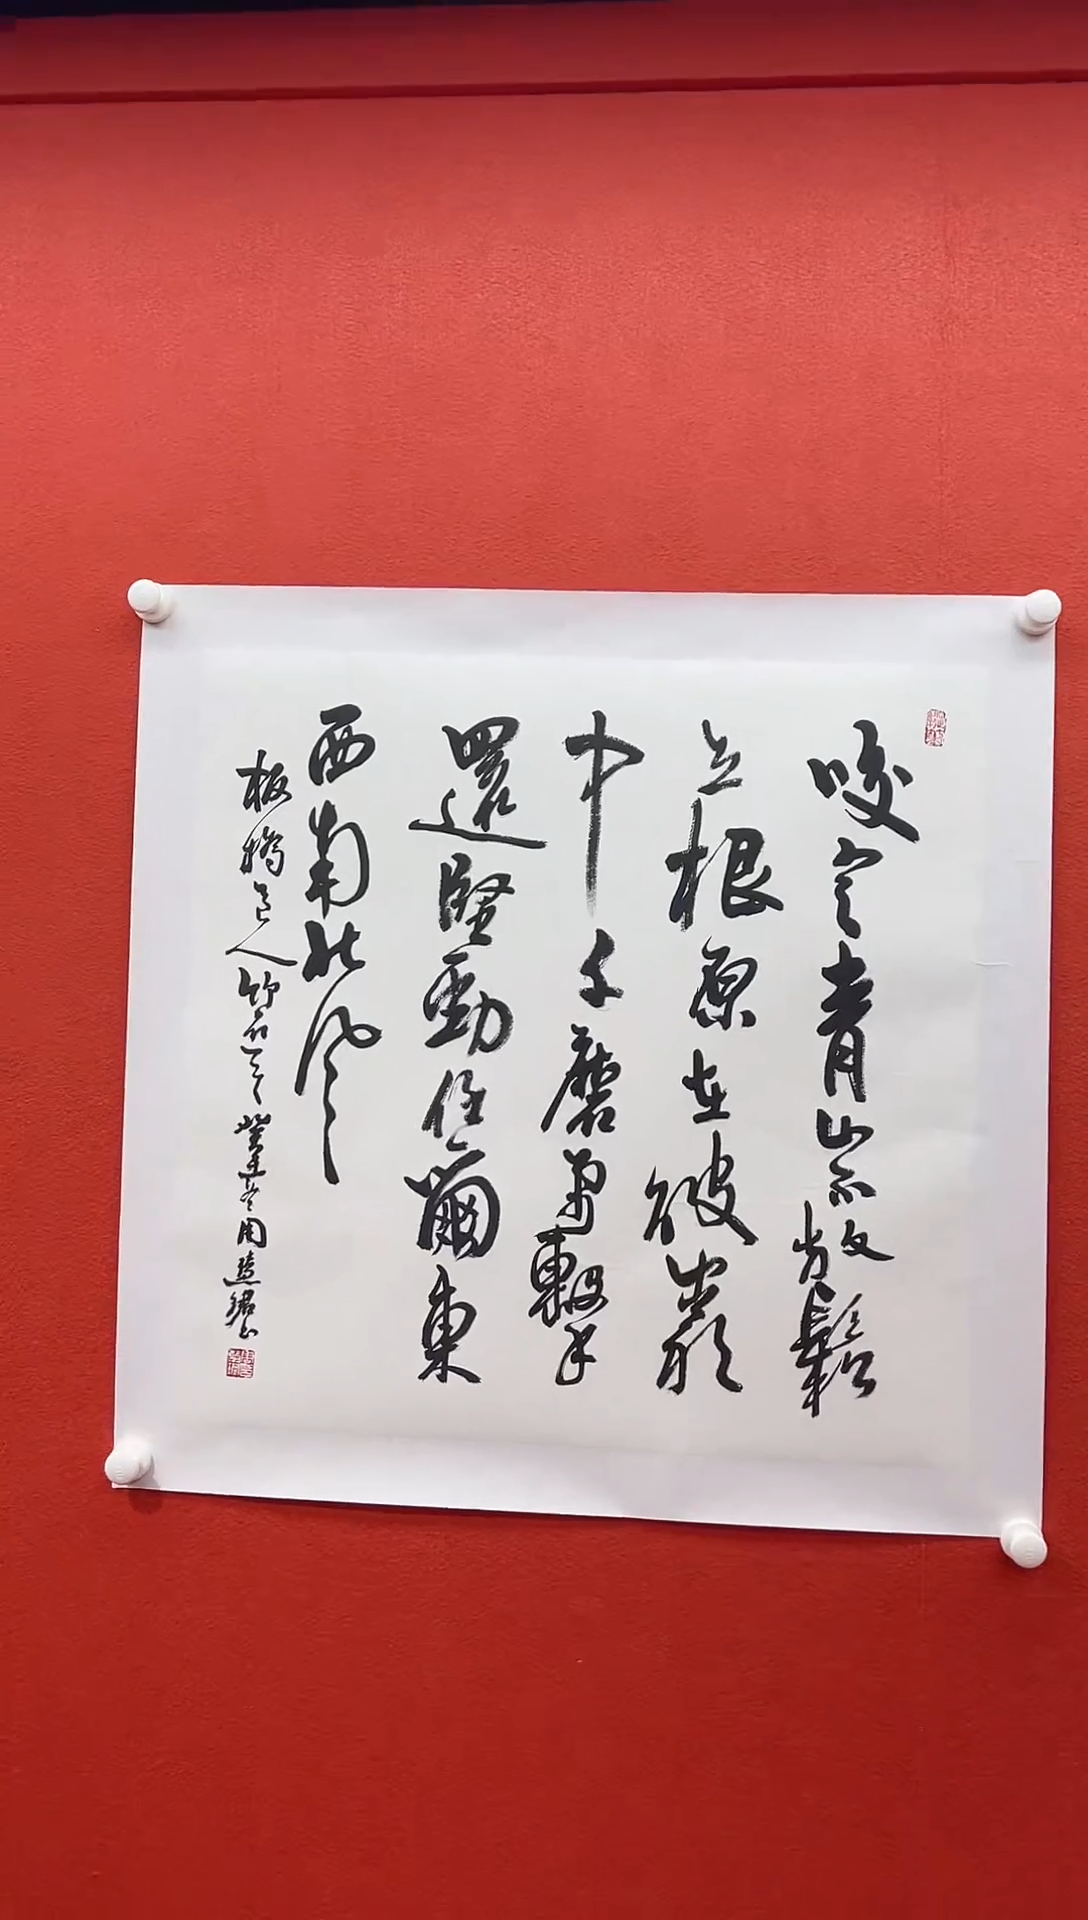 咬定青山不放鬆
立根原在破巖
中千磨萬擊
還堅勁任爾東
西南北風
板橋道人竹石 周慧珺書